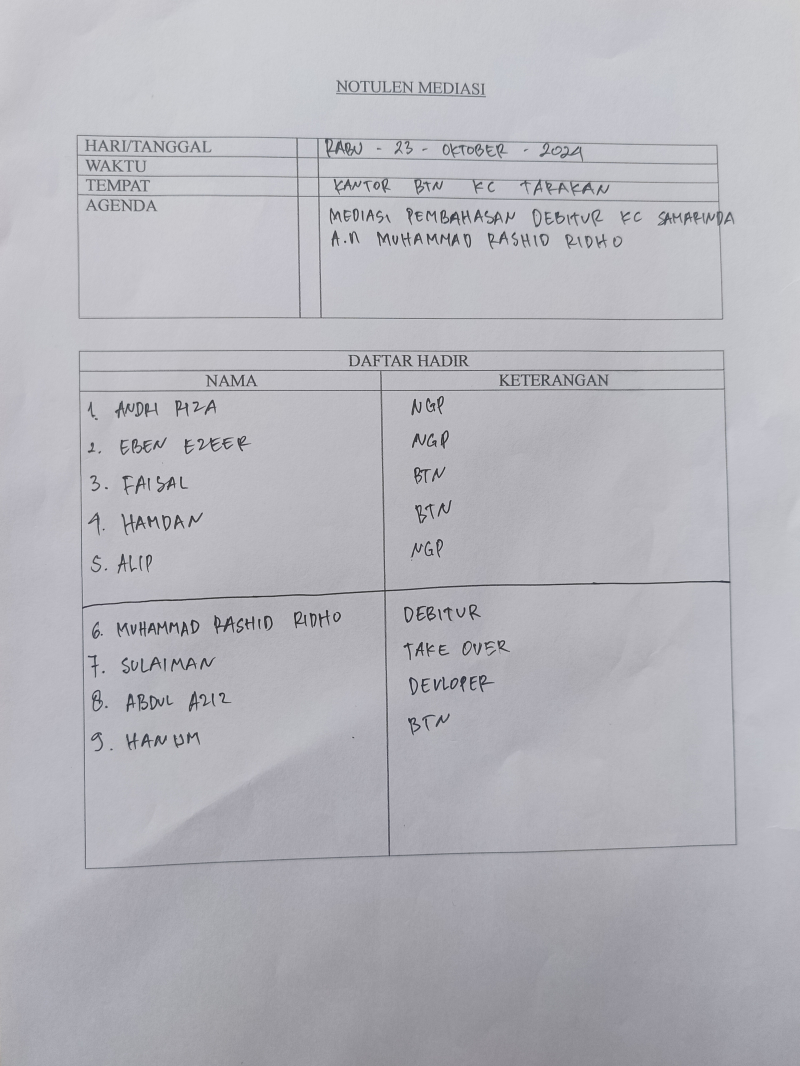 NOTULEN MEDIASI
HARI/TANGGAL RABU - 23 - OKTOBER - 2024
WAKTU
TEMPAT KANTOR BTN KC TARAKAN
AGENDA MEDIASI PEMBAHASAN DEBITUR KC SAMARINDA
A.n MUHAMMAD RASHID RIDHO
DAFTAR HADIR
NAMA KETERANGAN
1. ANDRI RIZA NGP
2. EBEN EZEER NGP
3. FAISAL BTN
4. HAMDAN BTN
5. ALIP NGP
6. MUHAMMAD RASHID RIDHO DEBITUR
7. SULAIMAN TAKE OVER
8. ABDUL AZIZ DEVLOPER
9. HANUM BTN